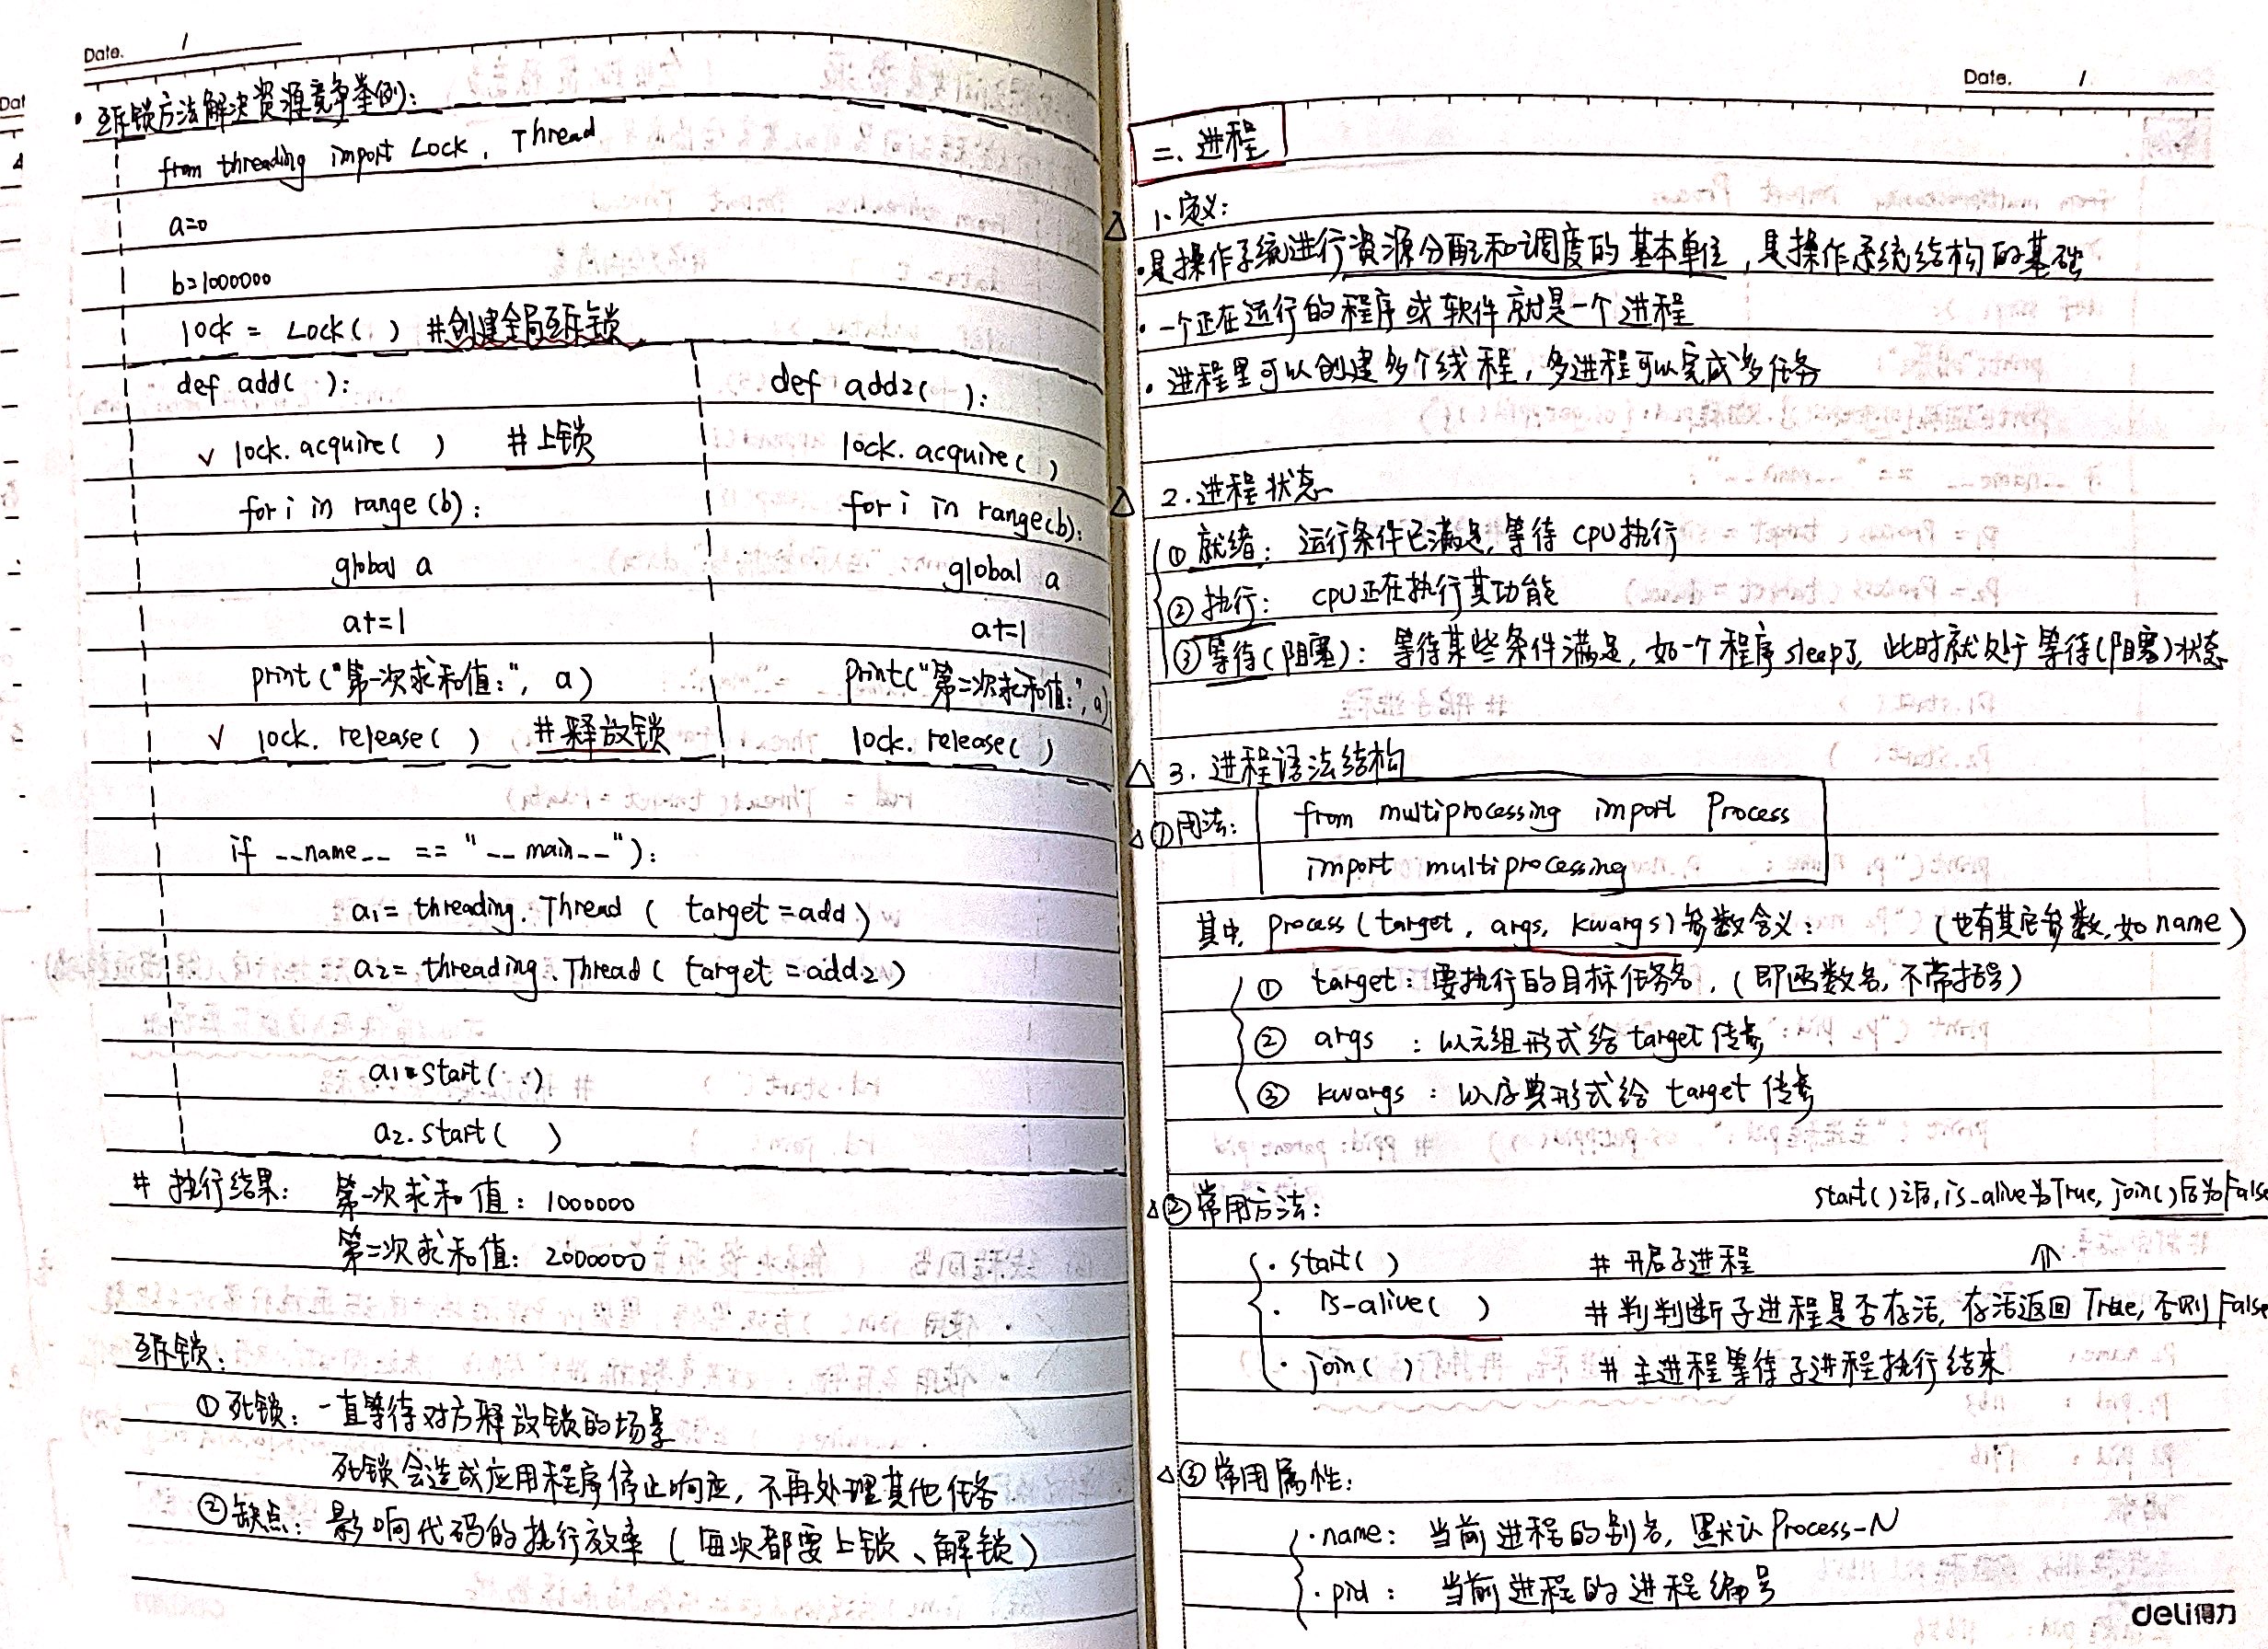 Date. /
· 互斥锁方法解决资源竞争举例):
from threading import Lock, Thread
a=0
b=1000000
lock = Lock( ) #创建全局互斥锁
def add( ):
√ lock.acquire( ) #上锁
for i in range(b):
global a
a+=1
print("第一次求和值:", a)
√ lock. release( ) #释放锁
def add2( ):
lock. acquire( )
for i in range(b):
global a
a+=1
print("第二次求和值:", a)
lock. release( )
if __name__ == "__main__"):
a1= threading. Thread ( target =add)
a2= threading. Thread ( target =add2)
a1.start( )
a2.start( )
# 执行结果: 第一次求和值: 1000000
第二次求和值: 2000000
互斥锁:
① 死锁: 一直等待对方释放锁的场景
死锁会造成应用程序停止响应, 不再处理其他任务
② 缺点: 影响代码的执行效率 (每次都要上锁、解锁)
Date. /
二、进程
△ 1、定义:
·是操作系统进行资源分配和调度的基本单位, 是操作系统结构的基础
·一个正在运行的程序或软件就是一个进程
·进程里可以创建多个线程, 多进程可以完成多任务
△ 2.进程状态
① 就绪: 运行条件已满足, 等待 CPU 执行
② 执行: CPU正在执行其功能
③ 等待(阻塞): 等待某些条件满足, 如一个程序sleep了, 此时就处于等待(阻塞)状态
△ 3. 进程语法结构
△①用法: from multiprocessing import Process
import multiprocessing
其中, Process (target, args, kwargs)参数含义: (也有其它参数, 如name)
① target: 要执行的目标任务名, (即函数名, 不带括号)
② args : 以元组形式给target传参
③ kwargs : 以字典形式给 target 传参
△②常用方法: start( )之后, is-alive为True, join( )后为False
· start( ) # 开启子进程 ⇑
· is-alive( ) # 判判断子进程是否存活, 存活返回 True, 否则 False
· join( ) # 主进程等待子进程执行结束
△③常用属性:
· name: 当前进程的别名, 默认 Process-N
· pid : 当前进程的进程编号
deli得力